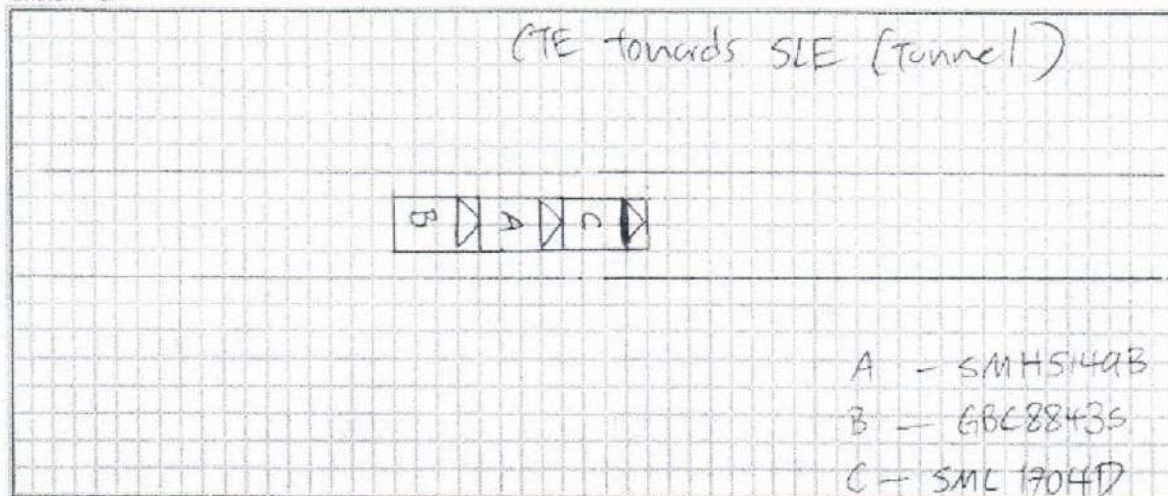 (TE towards SLE (Tunnel)
B A C
A - SMH5149B
B - GBC8843S
C - SML1704D